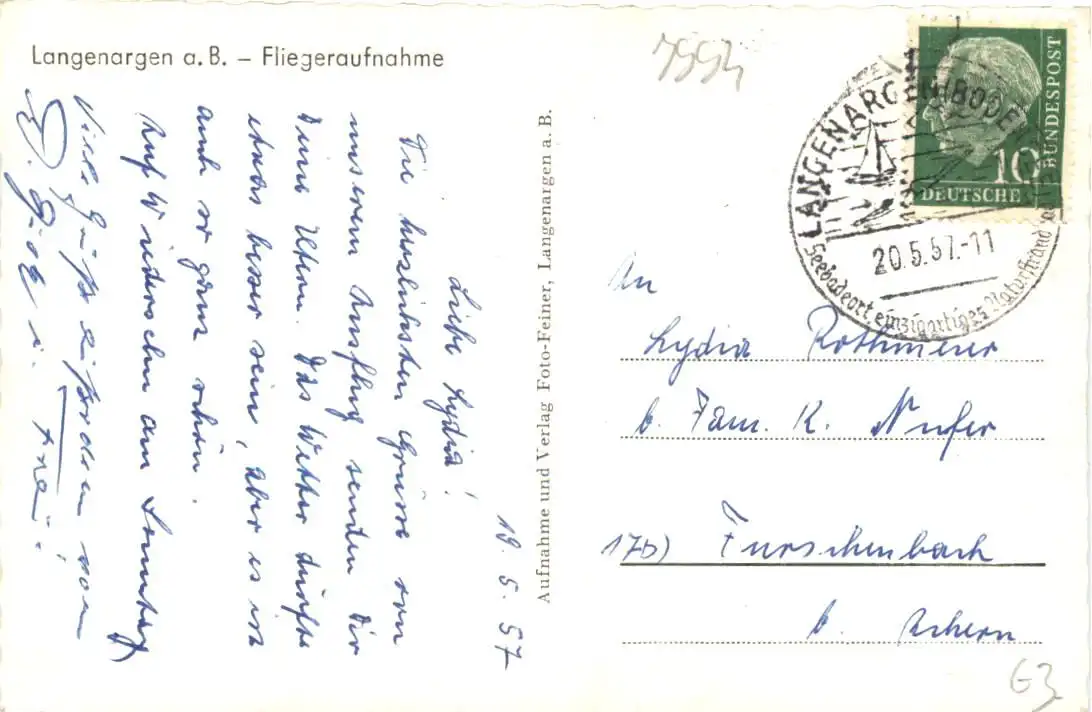 Langenargen a. B. – Fliegeraufnahme
7994
19. 5. 57
Liebe Lydia!
Die herzlichsten Grüsse von
unserem Ausflug senden Dir
Deine Eltern. Das Wetter dürfte
etwas besser sein, aber es ist
auch so ganz schön.
Auf Wiedersehn am Sonntag
Viele Grüße außerdem von
Aufnahme und Verlag Foto-Feiner, Langenargen a. B.
LANGENARGEN (BODEN
20.5.57.-11
Seebadeort einzigartiges Naturstrand
10
DEUTSCHE
BUNDESPOST
An
Lydia Rothmeier
b. Fam. K. Nufer
17b) Furschenbach
b. Achern
63